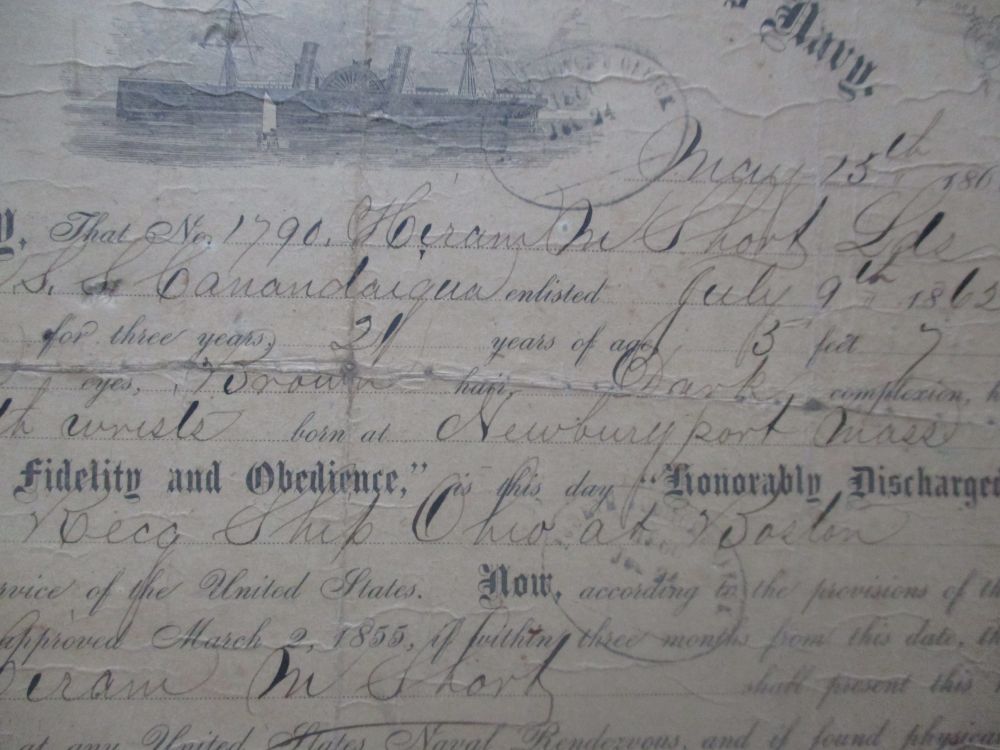 Navy.
May 15th 186
y, That No. 1790, Hiram M Short Lds
S. S. Canandaigua enlisted July 9th 1862
for three years, 21 years of age, 5 feet 7
eyes, Brown hair, Dark complexion, h
th wrists born at Newburyport Mass
Fidelity and Obedience," is this day "Honorably Discharged
Recg Ship Ohio at Boston
rvice of the United States. Now, according to the provisions of th
approved March 2, 1855, if within three months from this date, th
iram M Short shall present this
at any United States Naval Rendezvous, and if found physica